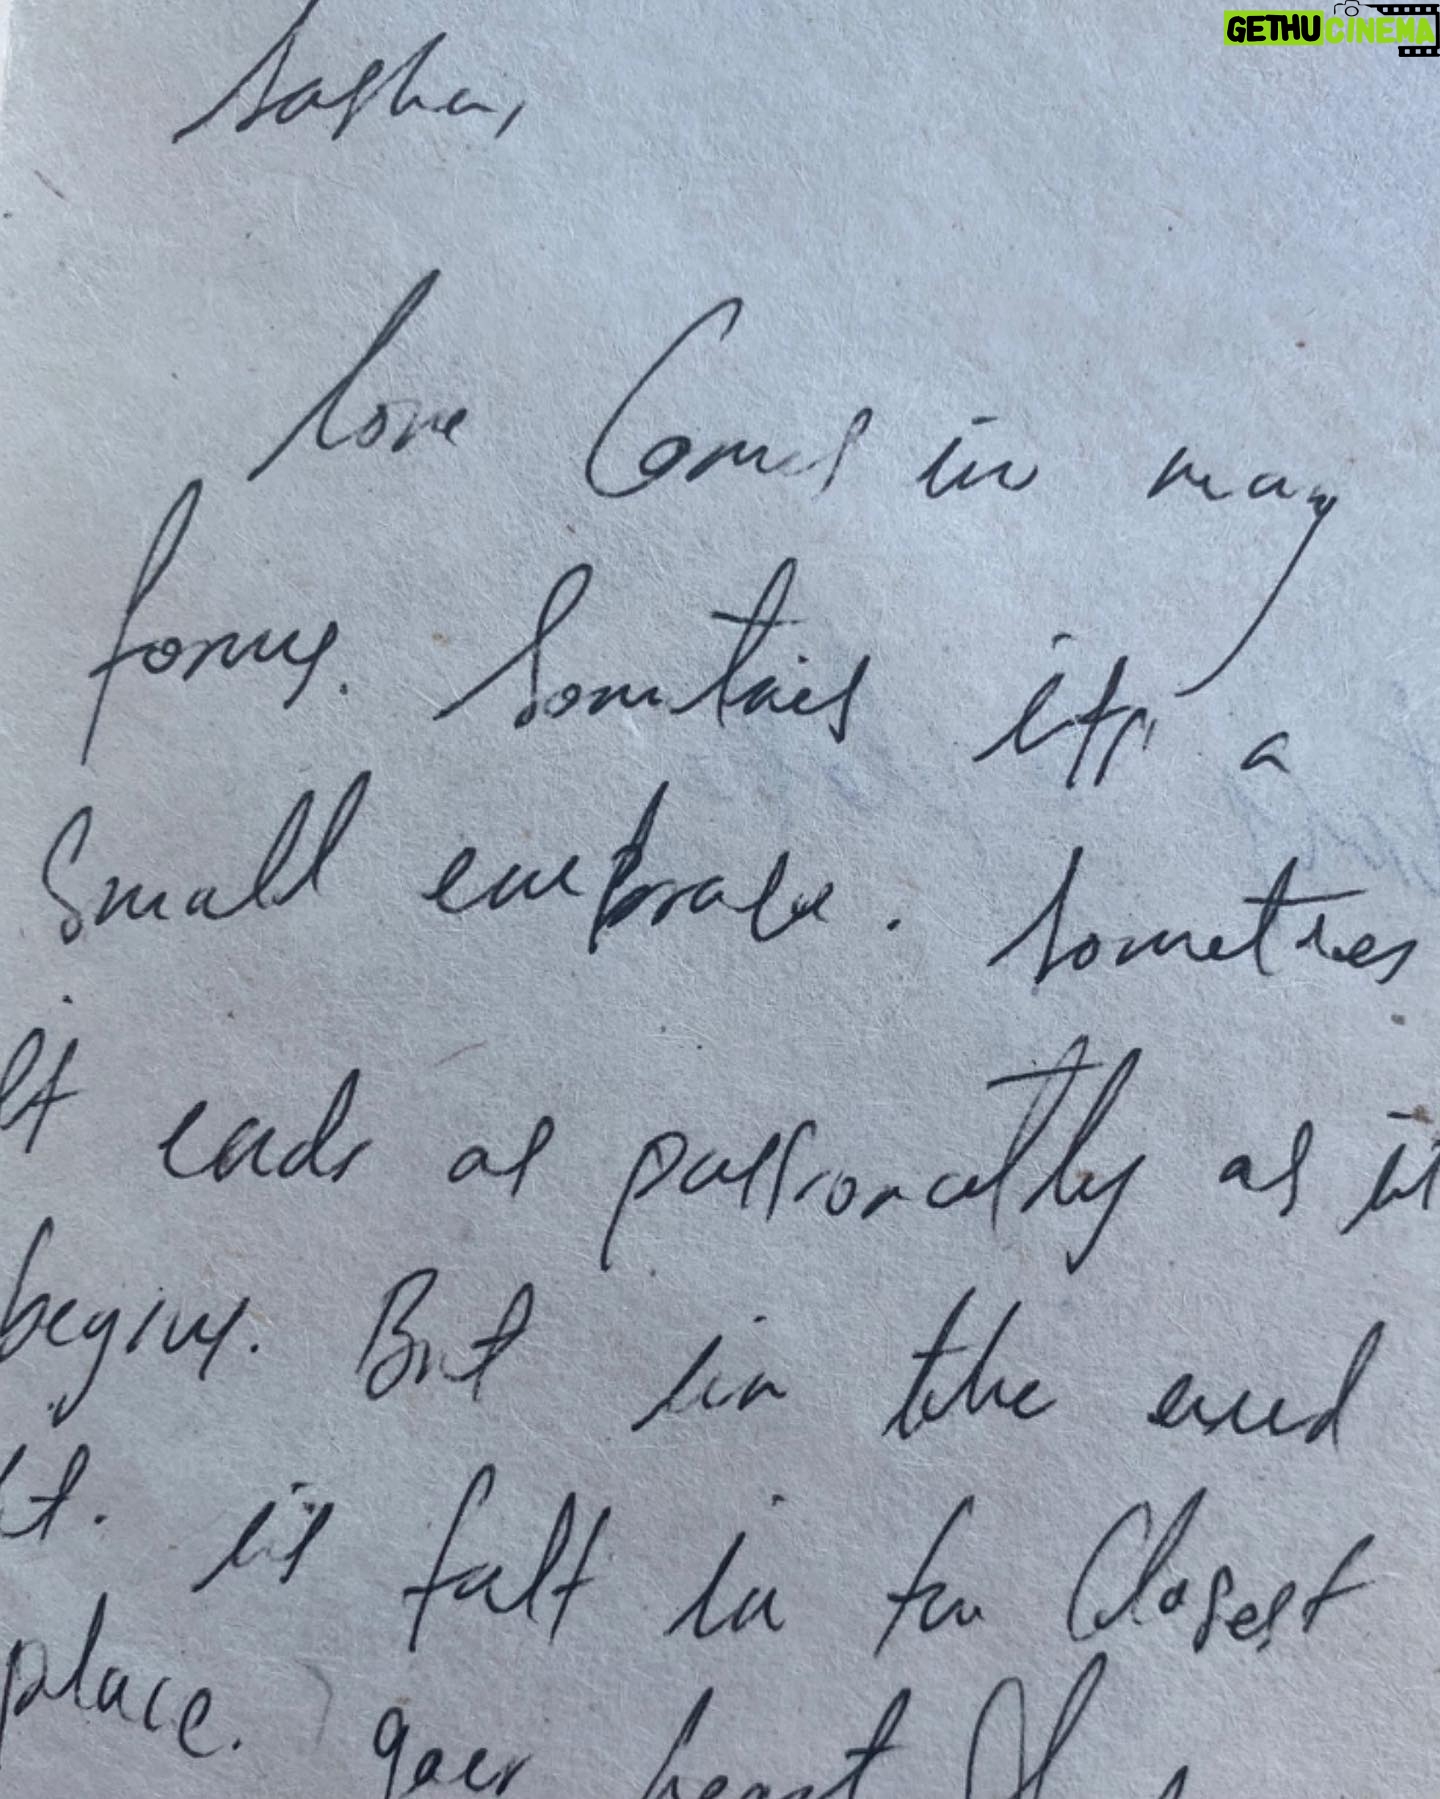 GETHUCINEMA
Sasha,
love Comes in many
forms. Sometimes its a
Small embrase. Sometimes
it ends as passionatly as it
begins. But in the end
it. is falt in the Closest
place. your heart